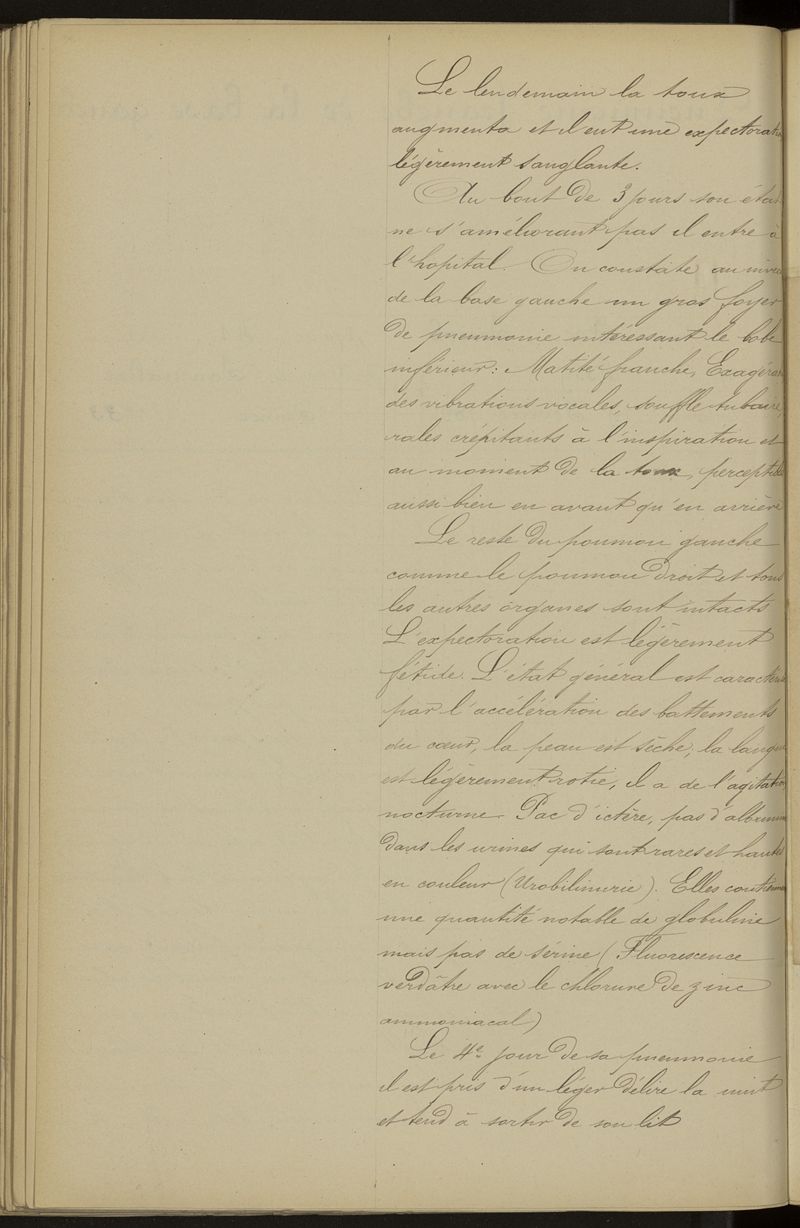 Le lendemain la toux
augmenta et il eut une expectorati
légèrement sanglante.
Au bout de 3 jours son état
ne s'améliorant pas il entre à
l'hopital. On constate au nive
de la base gauche un gros foyer
de pneumonie intéressant le lobe
inférieur : Matité franche, Exagérat
des vibrations vocales, souffle tubaire,
rales crépitants à l'inspiration et
au moment de la toux, perceptible
aussi bien en avant qu'en arrière
Le reste du poumon gauche
comme le poumon droit et tous
les autres organes sont intacts
L'expectoration est légèrement
fétide. L'état général est caractéris
par l'accélération des battements
du cœur, la peau est sèche, la langue
est légèrement rotie, il a de l'agitation
nocturne. Pas d'ictère, pas d'albumin
dans les urines qui sont rares et hautes
en couleur (Urobilinurie). Elles contienn
une quantité notable de globuline
mais pas de sérine (Fluorescence
verdâtre avec le chlorure de zinc
ammoniacal)
Le 4e jour de sa pneumonie
il est pris d'un léger délire la nuit
et tend à sortir de son lit